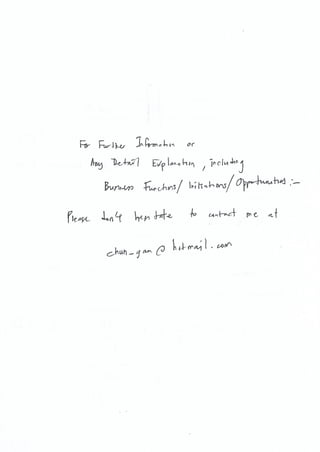 For Further Information or
Any Detail Explanation, including
Business Functions/ Initiations/ Opportunities :-
Please don't hesitate to contact me at
chun_gan@hotmail.com